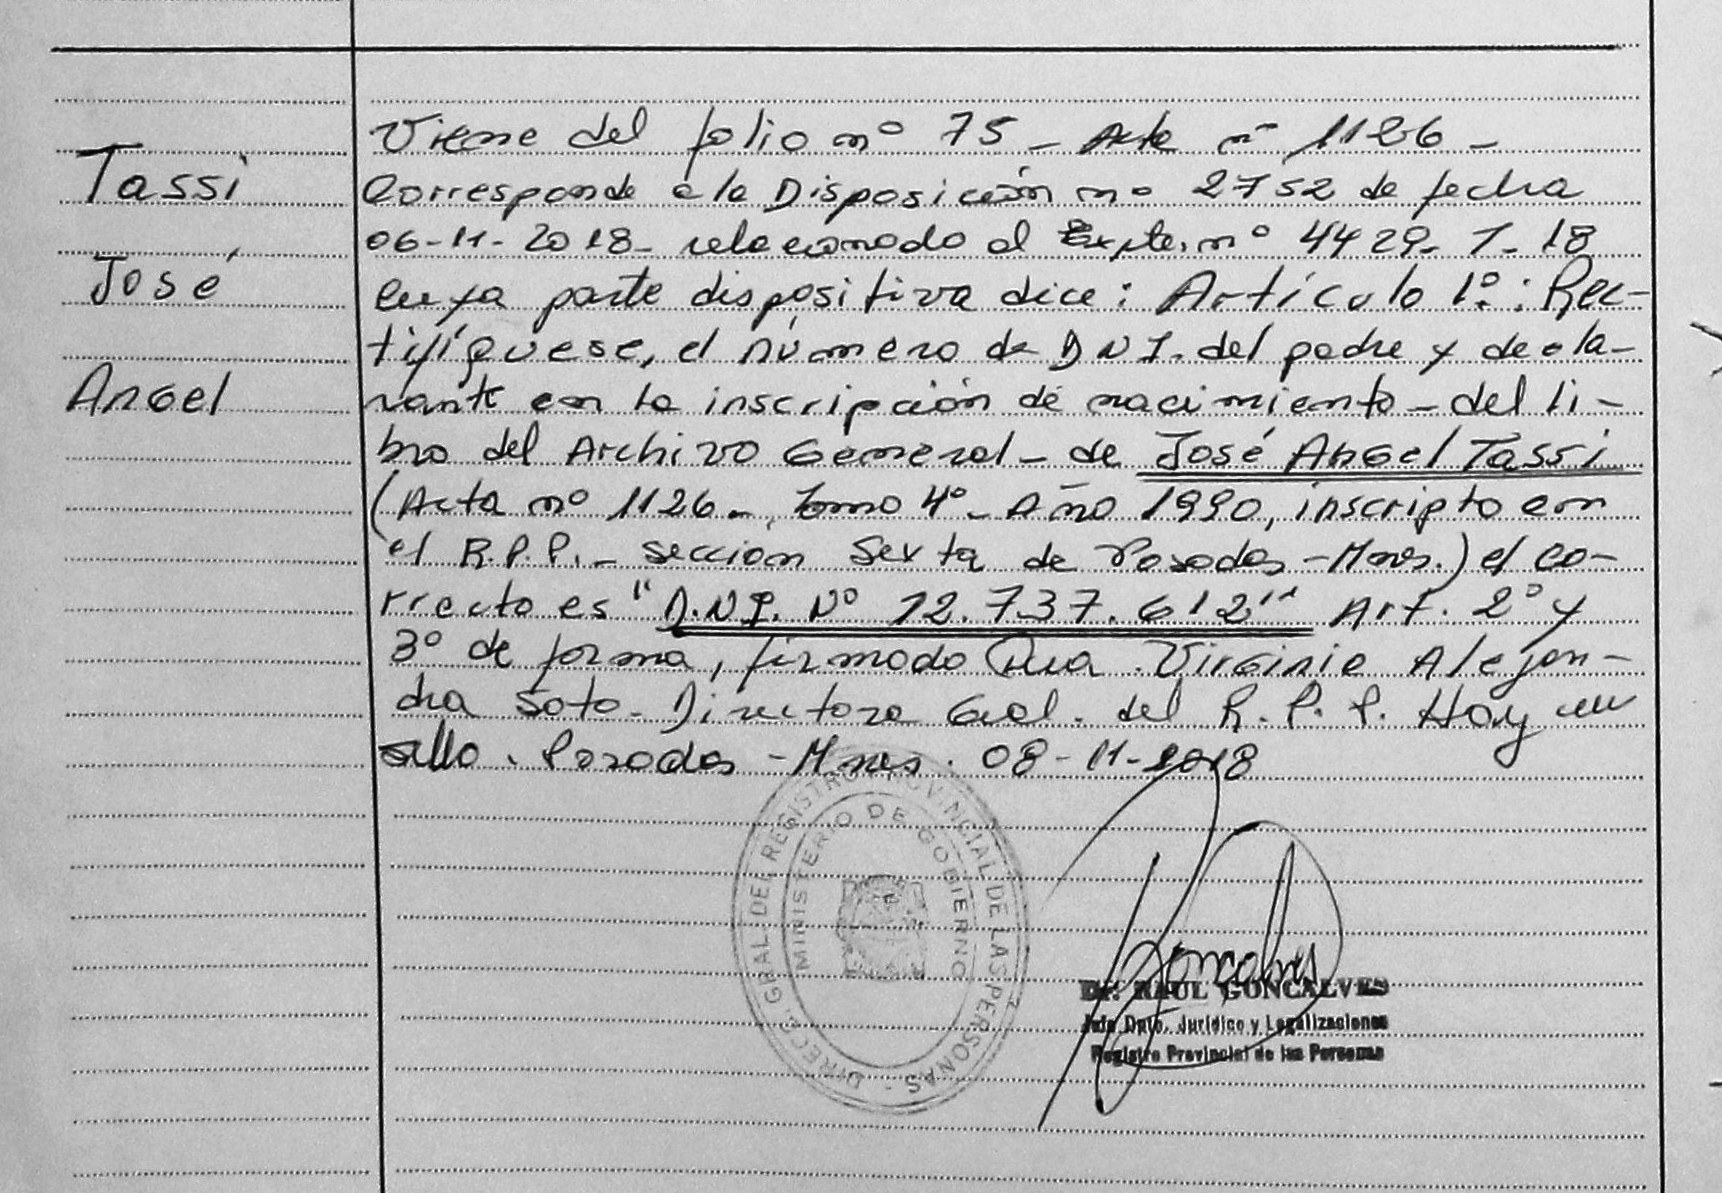 Tassi
José
Angel
Viene del folio nº 75 - Acta nº 1126 -
Corresponde a la Disposición nº 2752 de fecha
06-11-2018- relacionado al Expte. nº 4429- T- 18
cuya parte dispositiva dice: Artículo 1º: Rec-
tifíquese, el número de D N I. del padre y decla-
rante en la inscripción de nacimiento - del li-
bro del Archivo General - de José Angel Tassi
(Acta nº 1126 -, tomo 4º - Año 1990, inscripto en
el R.P.P. - sección Sexta de Posadas - Mnes.) el co-
rrecto es "D.N.I. Nº 12.737.612" Art. 2º y
3º de forma, firmado Dra. Virginia Alejan-
dra Soto - Directora Gral. del R.P.P. Hay un
sello. Posadas - Mnes. 08-11-2018
DIREC. GRAL. DEL REGISTRO PROVINCIAL DE LAS PERSONAS -
MINISTERIO DE GOBIERNO
Goncalves
Dr. RAUL GONCALVES
Jefe Dpto. Jurídico y Legalizaciones
Registro Provincial de las Personas